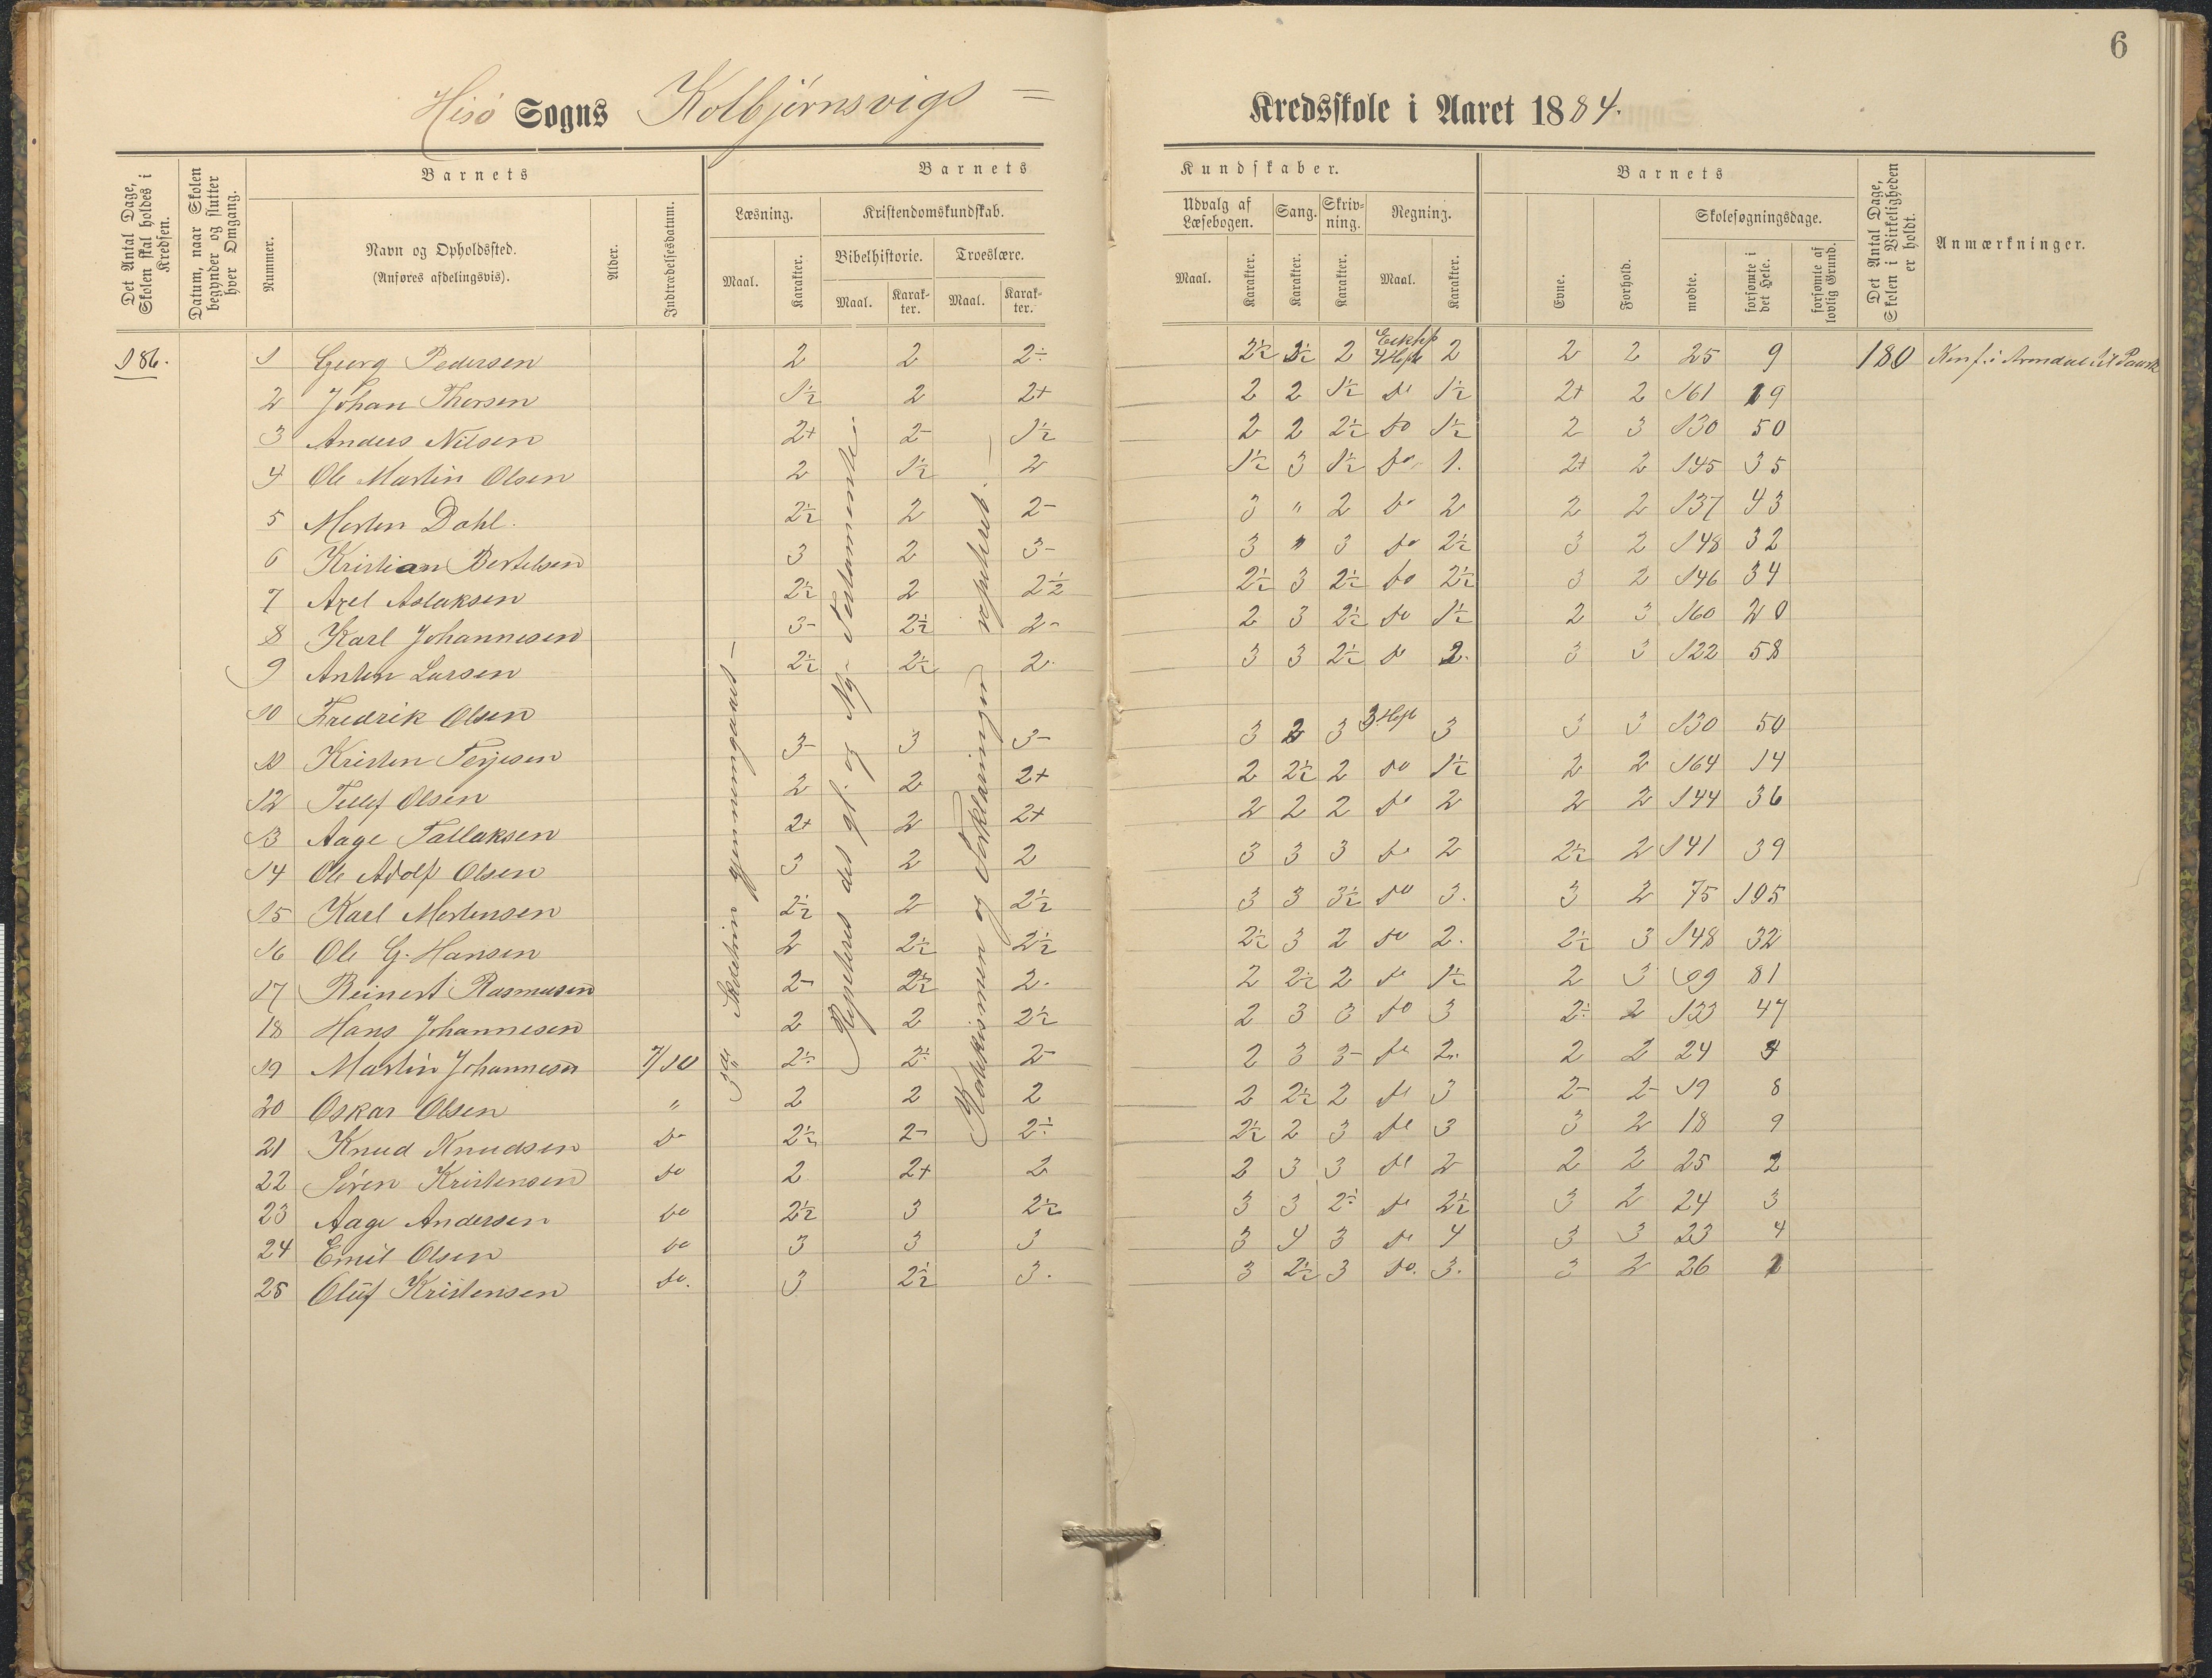 6
Hisö Sogns Kolbjörnsvigs = Kredsskole i Aaret 1884.
Det Antal Dage, Skolen skal holdes i Kredsen.
Datum, naar Skolen begynder og slutter hver Omgang.
Barnets
Nummer.
Navn og Opholdssted.
(Anføres afdelingsvis).
Alder.
Indtrædelsesdatum.
Barnets Kundskaber.
Læsning.
Maal.
Karakter.
Kristendomskundskab.
Bibelhistorie.
Maal.
Karakter.
Troeslære.
Maal.
Karakter.
Udvalg af Læsebogen.
Maal.
Karakter.
Sang.
Karakter.
Skrivning.
Karakter.
Regning.
Maal.
Karakter.
Barnets
Evne.
Forhold.
Skolesøgningsdage.
mødte.
forsømte i det Hele.
forsømte af lovlig Grund.
Det Antal Dage, Skolen i Virkeligheden er holdt.
Anmærkninger.
186. 1 Georg Pedersen 2 2 2÷ 2½ 2½ 2 4 Hefte 2 2 2 25 9 180 Konf. i Arendal til Paask
2 Johan Thorsen 1½ 2 2+ 2 2 1½ do 1½ 2+ 2 161 19
3 Anders Nilsen 2+ 2- 1½ 2 2 2½ do 1½ 2 3 130 50
4 Ole Martin Olsen 2 1½ 2 1½ 3 1½ do 1. 2+ 2 145 35
5 Morten Dahl. 2½ 2 2- 3 " 2 do 2 2 2 137 43
6 Kristian Bertelsen 3 2 3- 3 " 3 do 2½ 3 2 148 32
7 Axel Aslaksen 2½ 2 2½ 2½ 3 2½ do 2½ 3 2 146 34
8 Karl Johannesen 3- 2½ 2- 2 3 2½ do 1½ 2 3 160 20
9 Anton Larsen 2½ 2½ 2. 3 3 2½ do 2. 3 3 122 58
10 Fredrik Olsen 3- 3 3- 3 2 3 3 Hefte 3 3 3 130 50
11 Kristen Terjesen 2 2 2+ 2 2½ 2 do 1½ 2 2 164 14
12 Tellef Olsen 2+ 2 2+ 2 2 2 do 2 2 2 144 36
13 Aage Tallaksen 3 2 2 3 3 3 do 2 2½ 2 141 39
14 Ole Adolf Olsen 2½ 2 2½ 3 3 3½ do 3. 3 2 75 105
15 Karl Mortensen 2 2½ 2½ 2½ 3 2 do 2. 2½ 3 148 32
16 Ole G. Hansen 2- 2½ 2. 2 2½ 2 do 1½ 2 3 99 81
17 Reinert Rasmusen 2 2 2½ 2 3 3 do 3 2÷ 2 133 47
18 Hans Johannesen
19 Martin Johannesen 7/10 2÷ 2÷ 2- 2 3 3- do 2. 2 2 24 4
20 Oskar Olsen " 2 2 2 2 2½ 2 do 3 2- 2- 19 8
21 Knud Knudsen do 2½ 2- 2÷ 2½ 2 3 do 3 3 2 18 9
22 Sören Kristensen do 2 2+ 2 2 3 3 do 2 2 2 25 2
23 Aage Andersen do 2½ 3 2½ 3 3 2÷ do 2½ 3 2 24 3
24 Emil Olsen do 3 3 3 3 4 3 do 4 3 3 23 4
25 Oluf Kristensen do. 3 2½ 3. 3 2½ 3 do. 3. 3 2 26 1
3die Skoletrin gjennemgaaet -
Repeteret det gl. og Ny Testamente.
Katekismen og Forklaringen repeteret. -